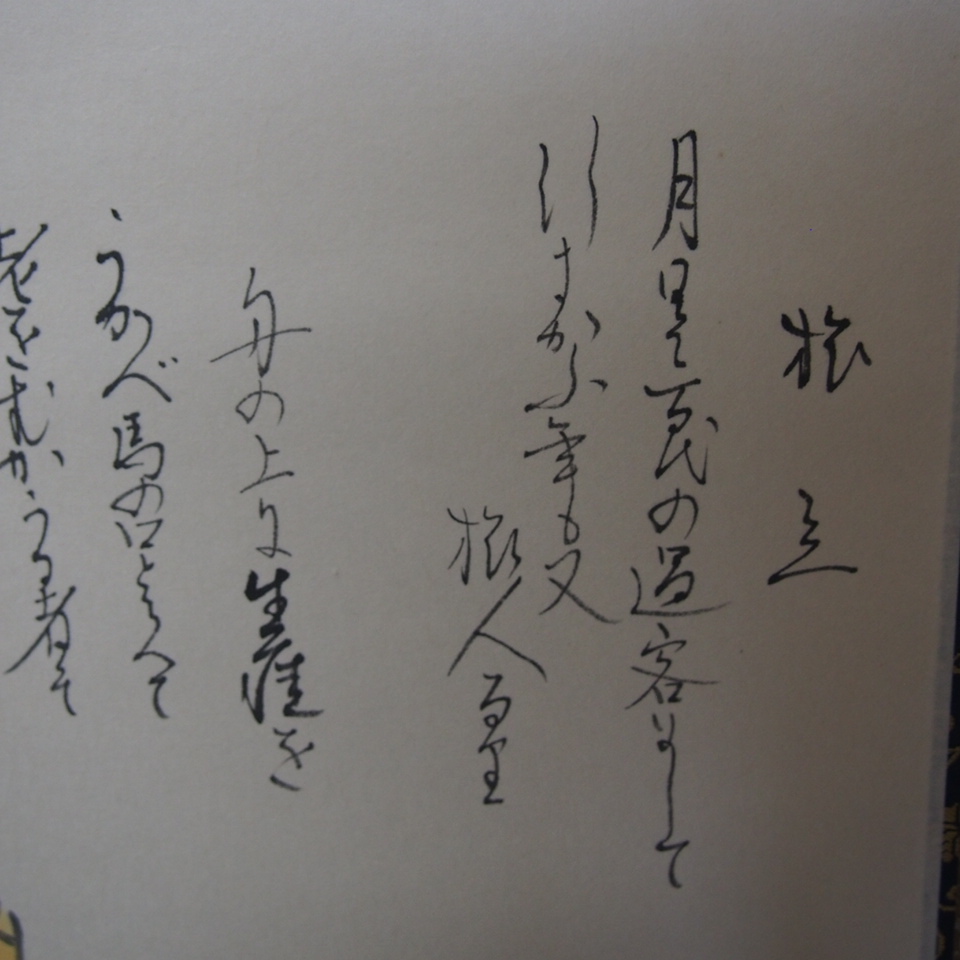 旅立
月日は百代の過客にして
行きかふ年も又
旅人なり
舟の上に生涯を
うかべ馬の口とらへて
老をむかふる者は